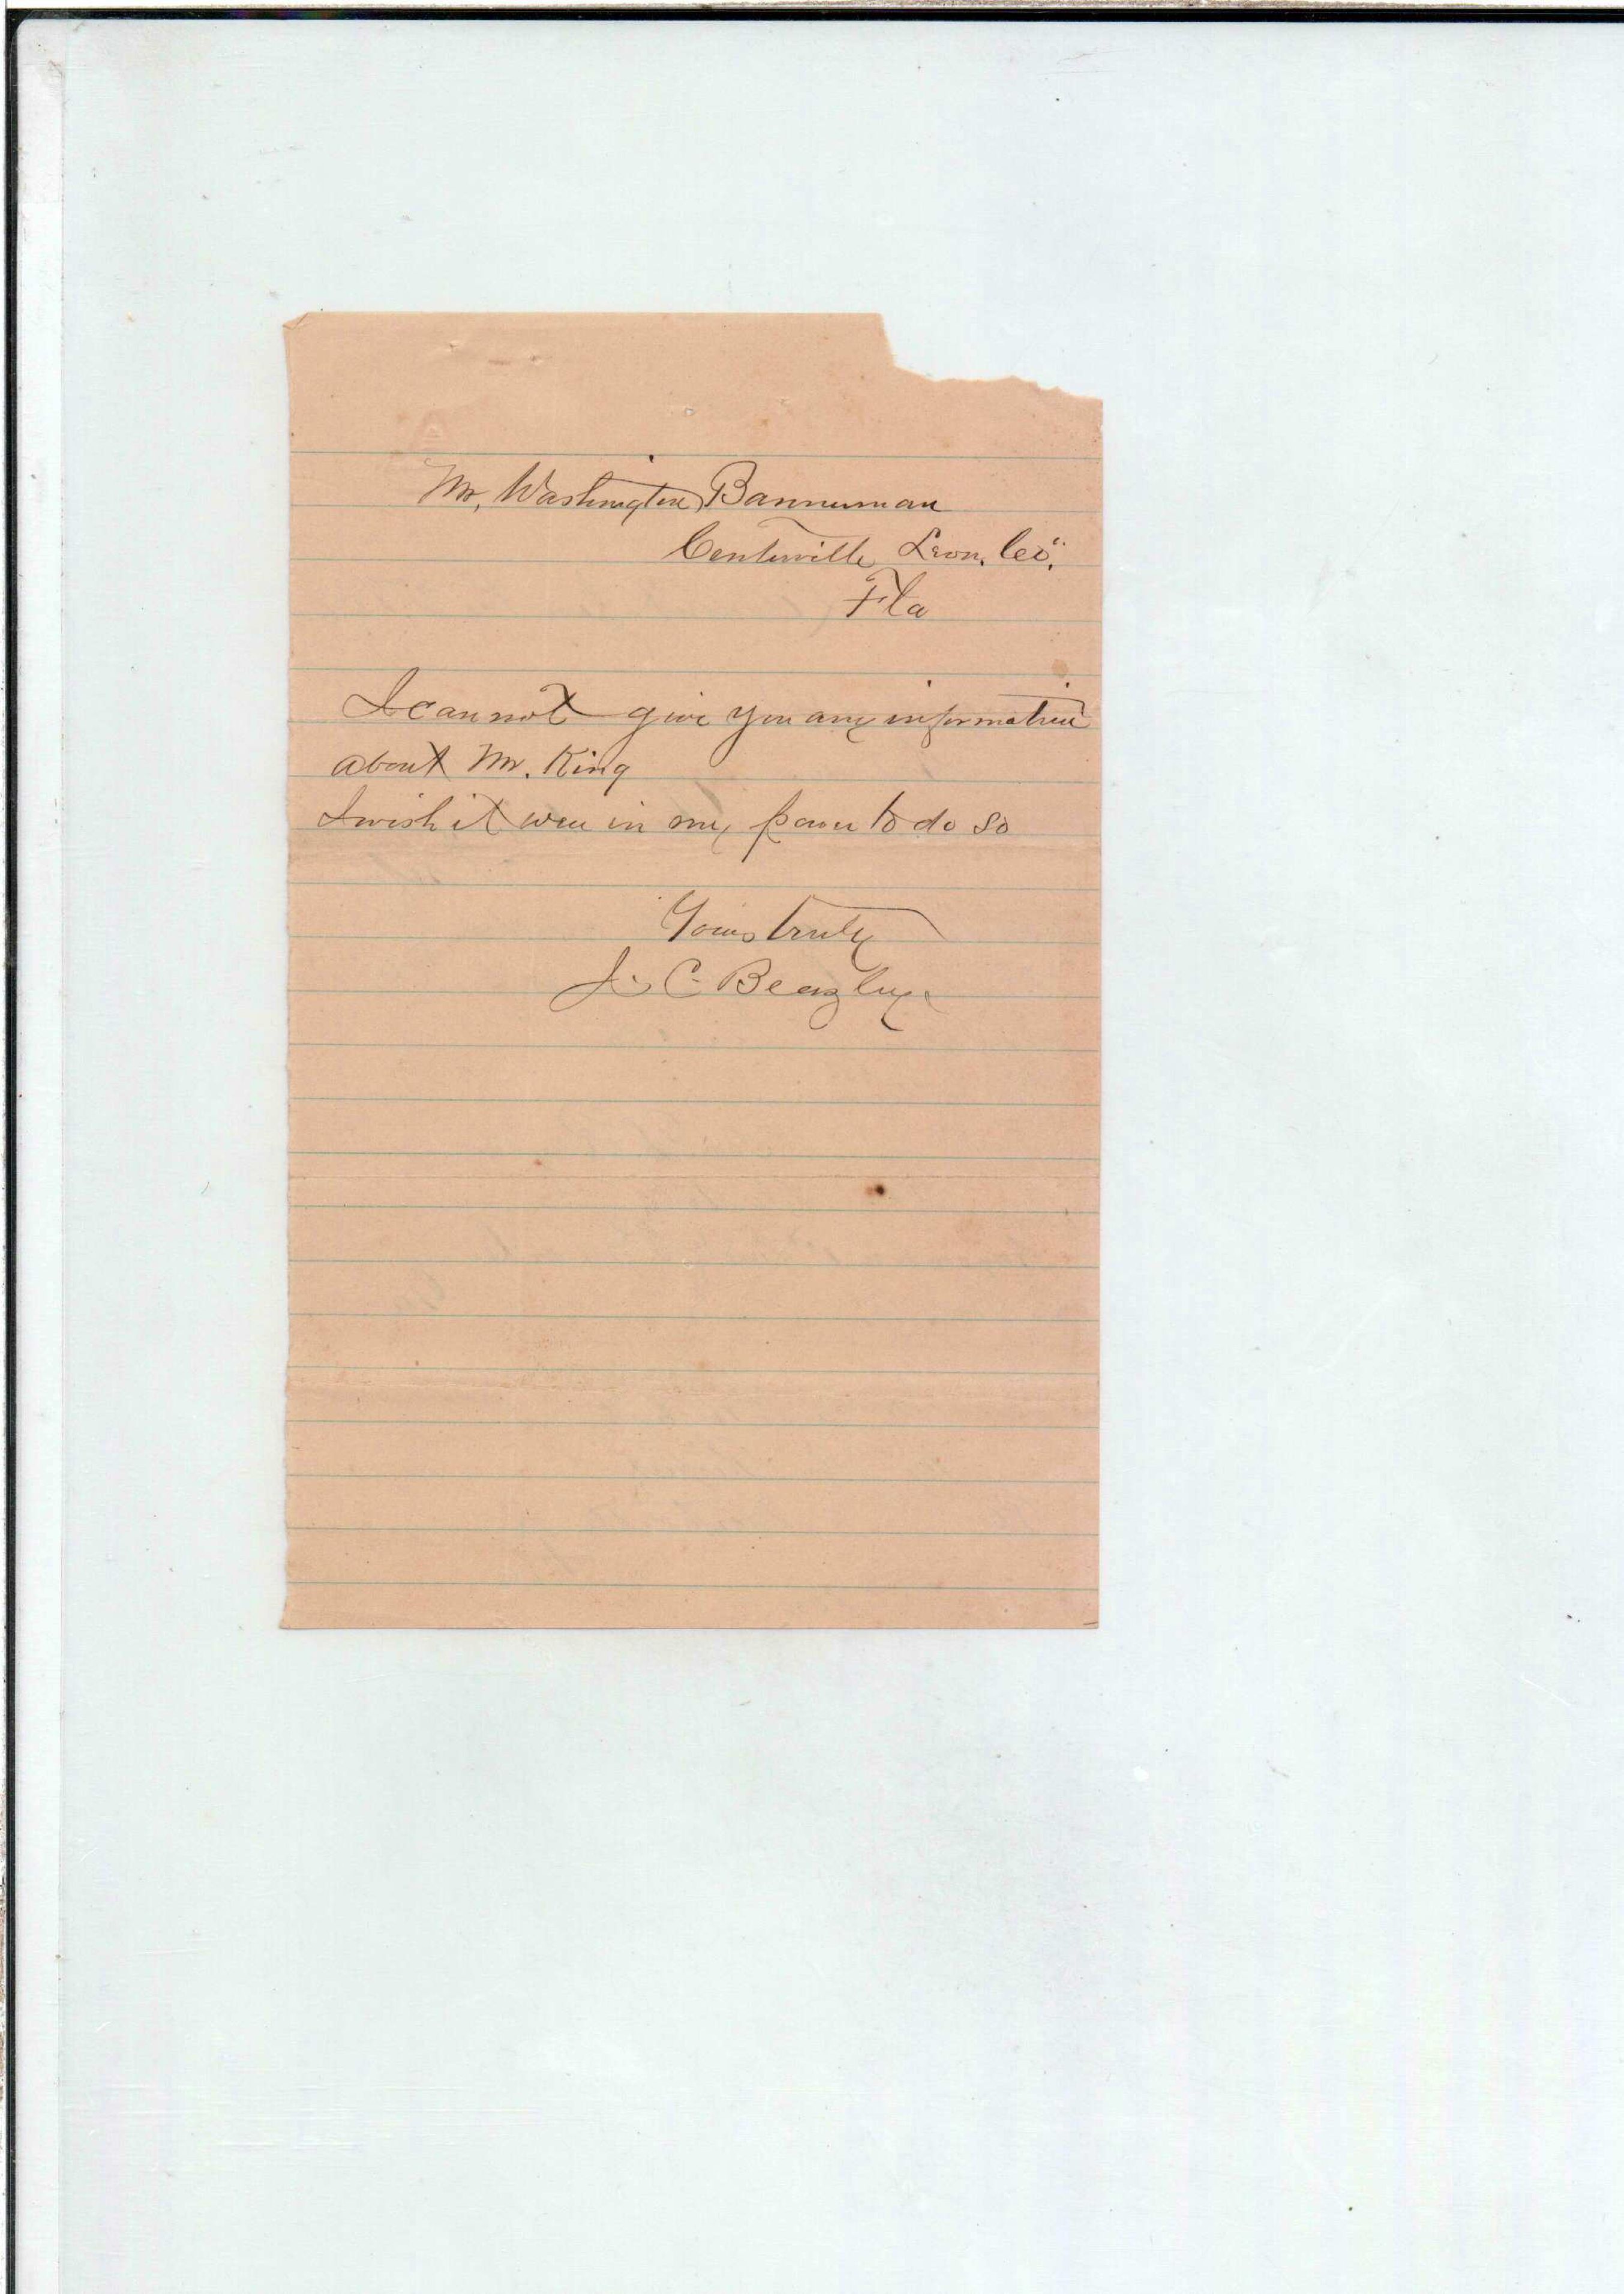 Mr, Washington Bannerman
Centerville Leon. Co,
Fla
I can not give you any information
about Mr. King
I wish it were in my power to do so
Yours truly
J. C. Beazley